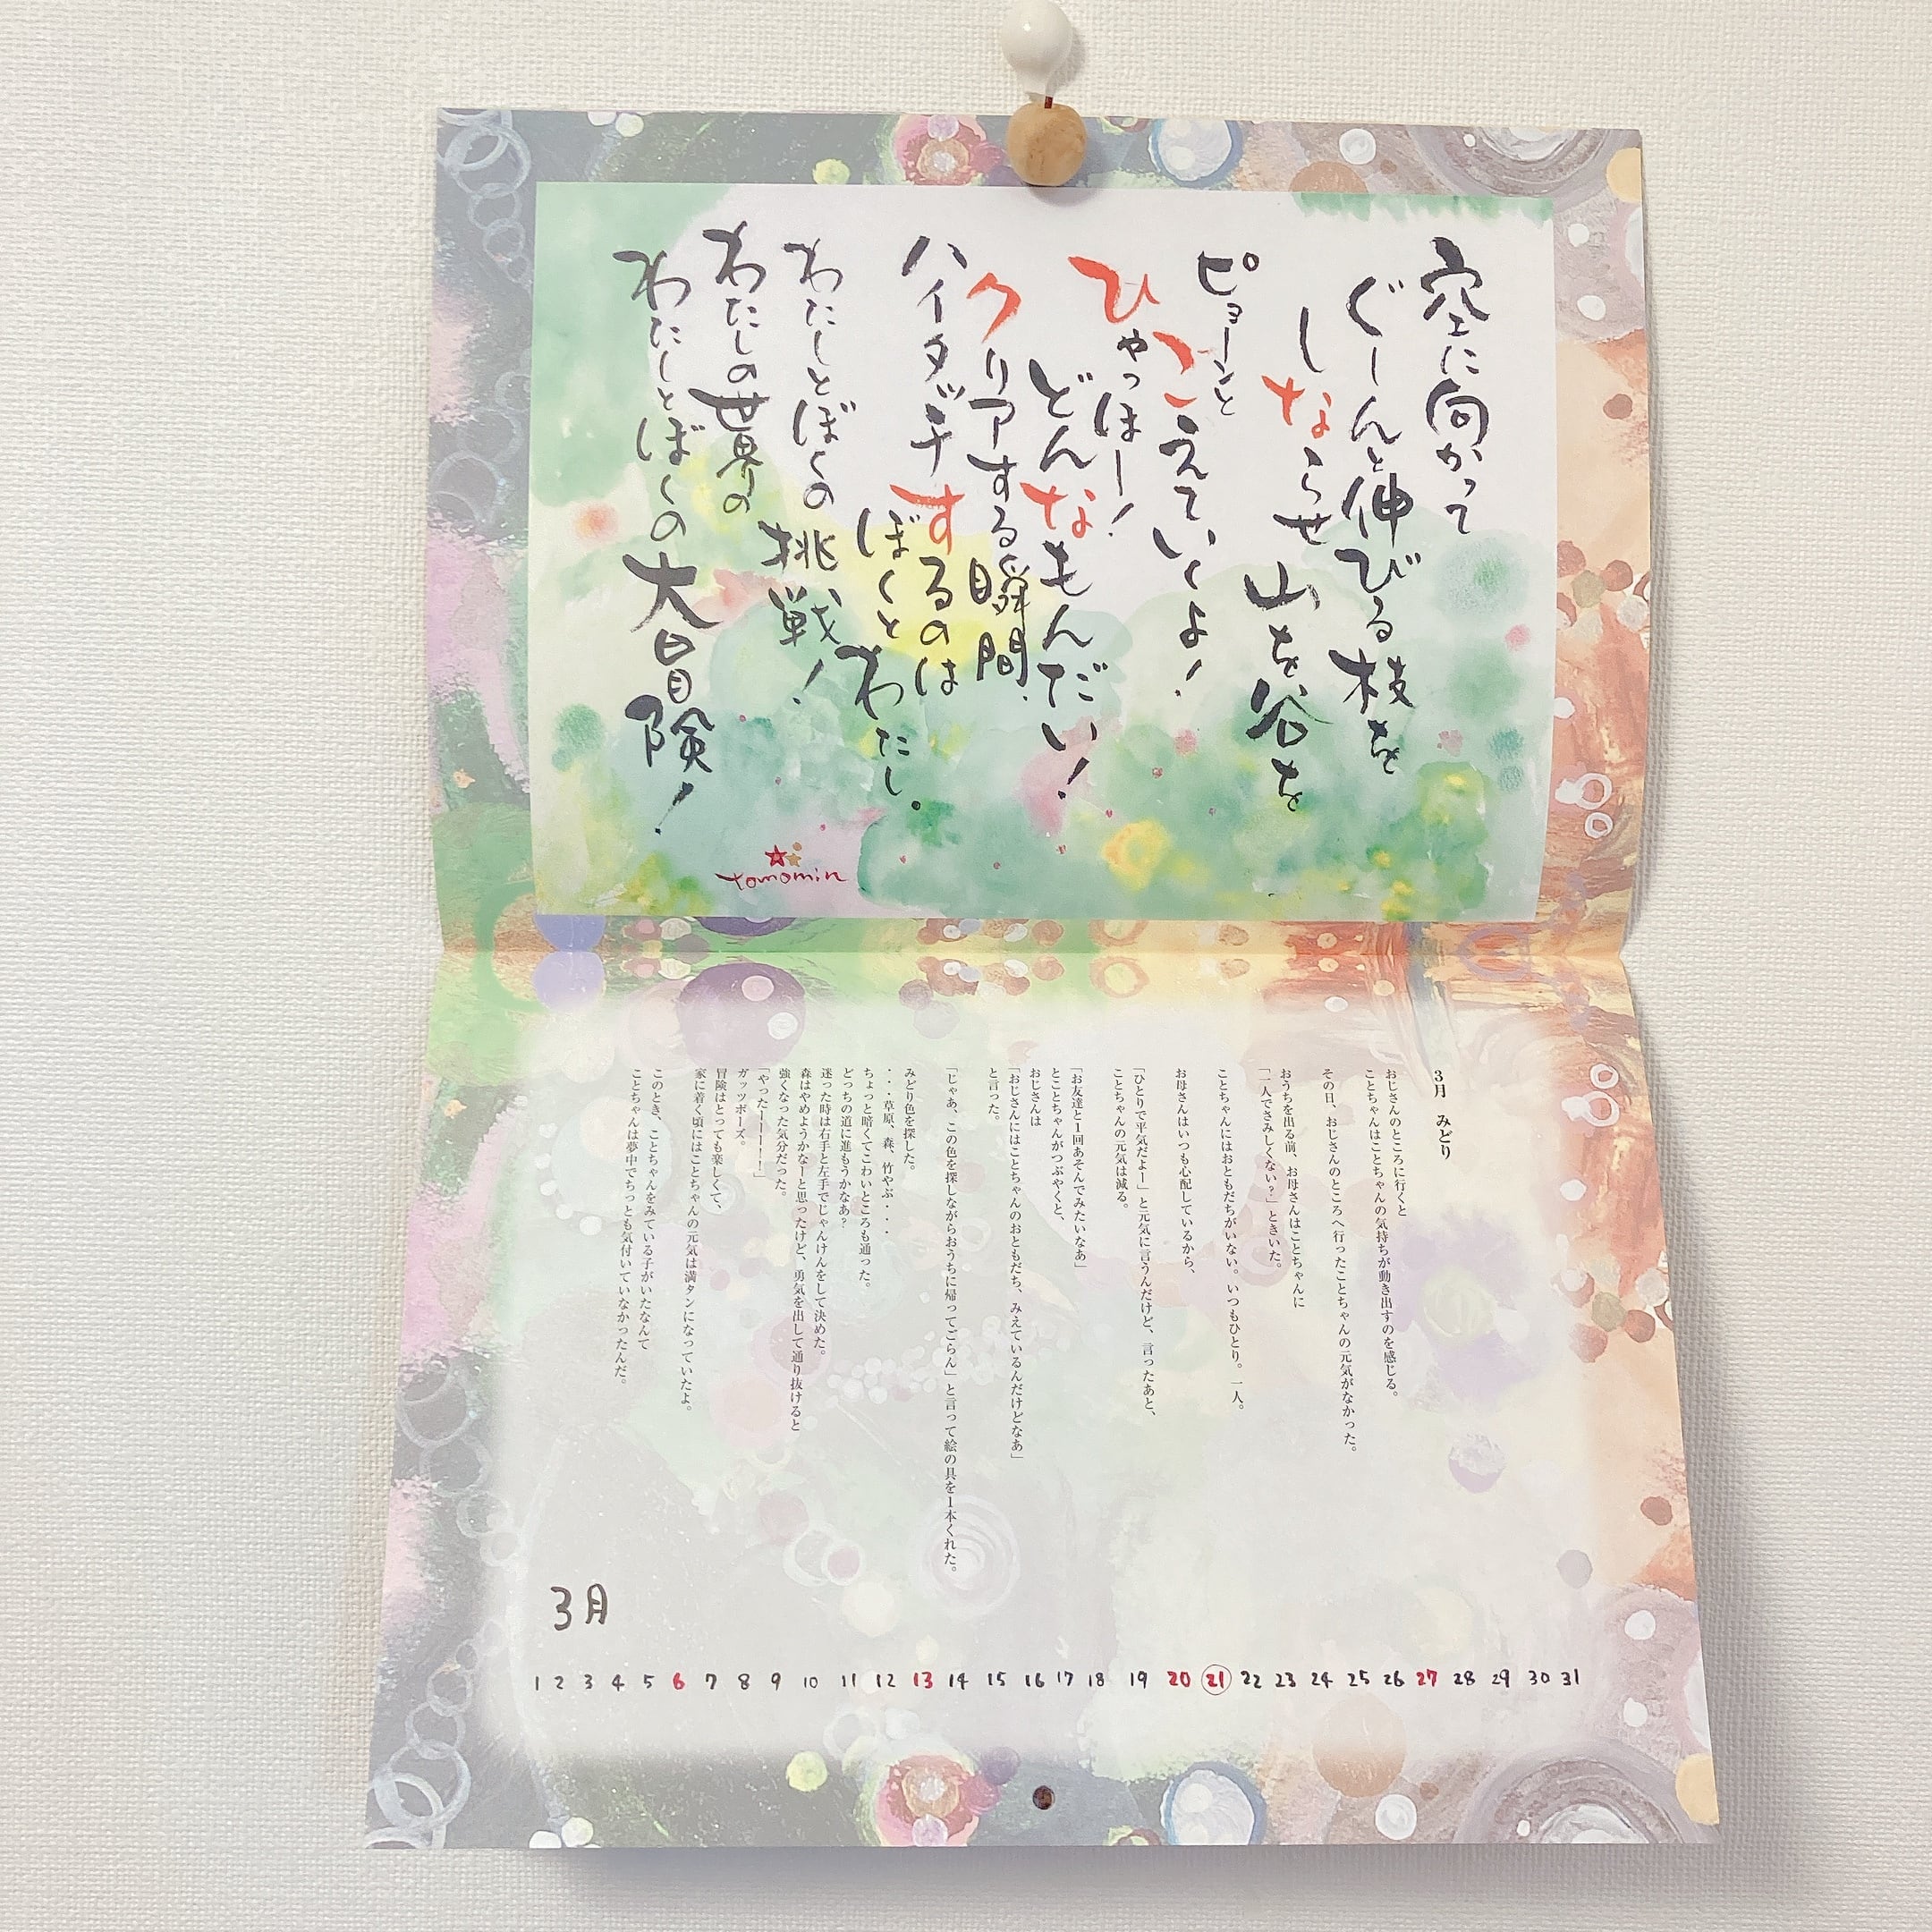 空に向かって
ぐーんと伸びる枝を
しならせ
山を谷を
ピョーンと
こえていくよ!
ひゃっほー!
どんなもんだい!
クリアする瞬間、
ハイタッチするのは
ぼくとわたし。
わたしとぼくの
挑戦!
わたしの世界の
わたしとぼくの大冒険!
tomomin
3月 みどり
おじさんのところに行くと
ことちゃんはことちゃんの気持ちが動き出すのを感じる。
その日、おじさんのところへ行ったことちゃんの元気がなかった。
おうちを出る前、お母さんはことちゃんに
「一人でさみしくない?」ときいた。
ことちゃんにはおともだちがいない。いつもひとり。一人。
お母さんはいつも心配しているから、
「ひとりで平気だよー」と元気に言うんだけど、言ったあと、
ことちゃんの元気は減る。
「お友達と1回あそんでみたいなあ」
とことちゃんがつぶやくと、
おじさんは
「おじさんにはことちゃんのおともだち、みえているんだけどなあ」
と言った。
「じゃあ、この色を探しながらおうちに帰ってごらん」と言って絵の具を1本くれた。
みどり色を探した。
・・・草原、森、竹やぶ・・・・
ちょっと暗くてこわいところも通った。
どっちの道に進もうかなあ?
迷った時は右手と左手でじゃんけんをして決めた。
森はやめようかなーと思ったけど、勇気を出して通り抜けると
強くなった気分だった。
「やったーーーーー!」
ガッツポーズ。
冒険はとっても楽しくて、
家に着く頃にはことちゃんの元気は満タンになっていたよ。
このとき、ことちゃんをみている子がいたなんて
ことちゃんは夢中でちっとも気付いていなかったんだ。
3月
1 2 3 4 5 6 7 8 9 10 11 12 13 14 15 16 17 18 19 20 21 22 23 24 25 26 27 28 29 30 31